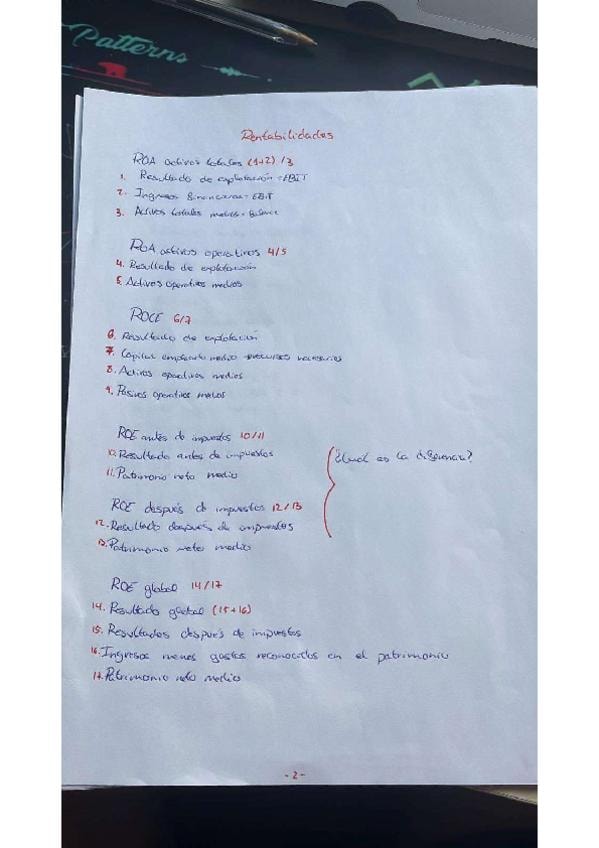 Patterns
Rentabilidades
ROA activos totales (1+2) /3
1. Resultado de explotación = EBIT
2. Ingresos financieros = EBIT
3. Activos totales medios = Balance
ROA activos operativos 4/5
4. Resultado de explotación
5. Activos operativos medios
ROCE 6/7
6. Resultado de explotación
7. Capital empleado medio recursos necesarios
8. Activos operativos medios
9. Pasivos operativos medios
ROE antes de impuestos 10/11
10. Resultado antes de impuestos
¿Cual es la diferencia?
11. Patrimonio neto medio
ROE después de impuestos 12/13
12. Resultado después de impuestos
13. Patrimonio neto medio
ROE global 14/17
14. Resultado global (15+16)
15. Resultados después de impuestos
16. Ingresos menos gastos reconocidos en el patrimonio
17. Patrimonio neto medio
- 2 -